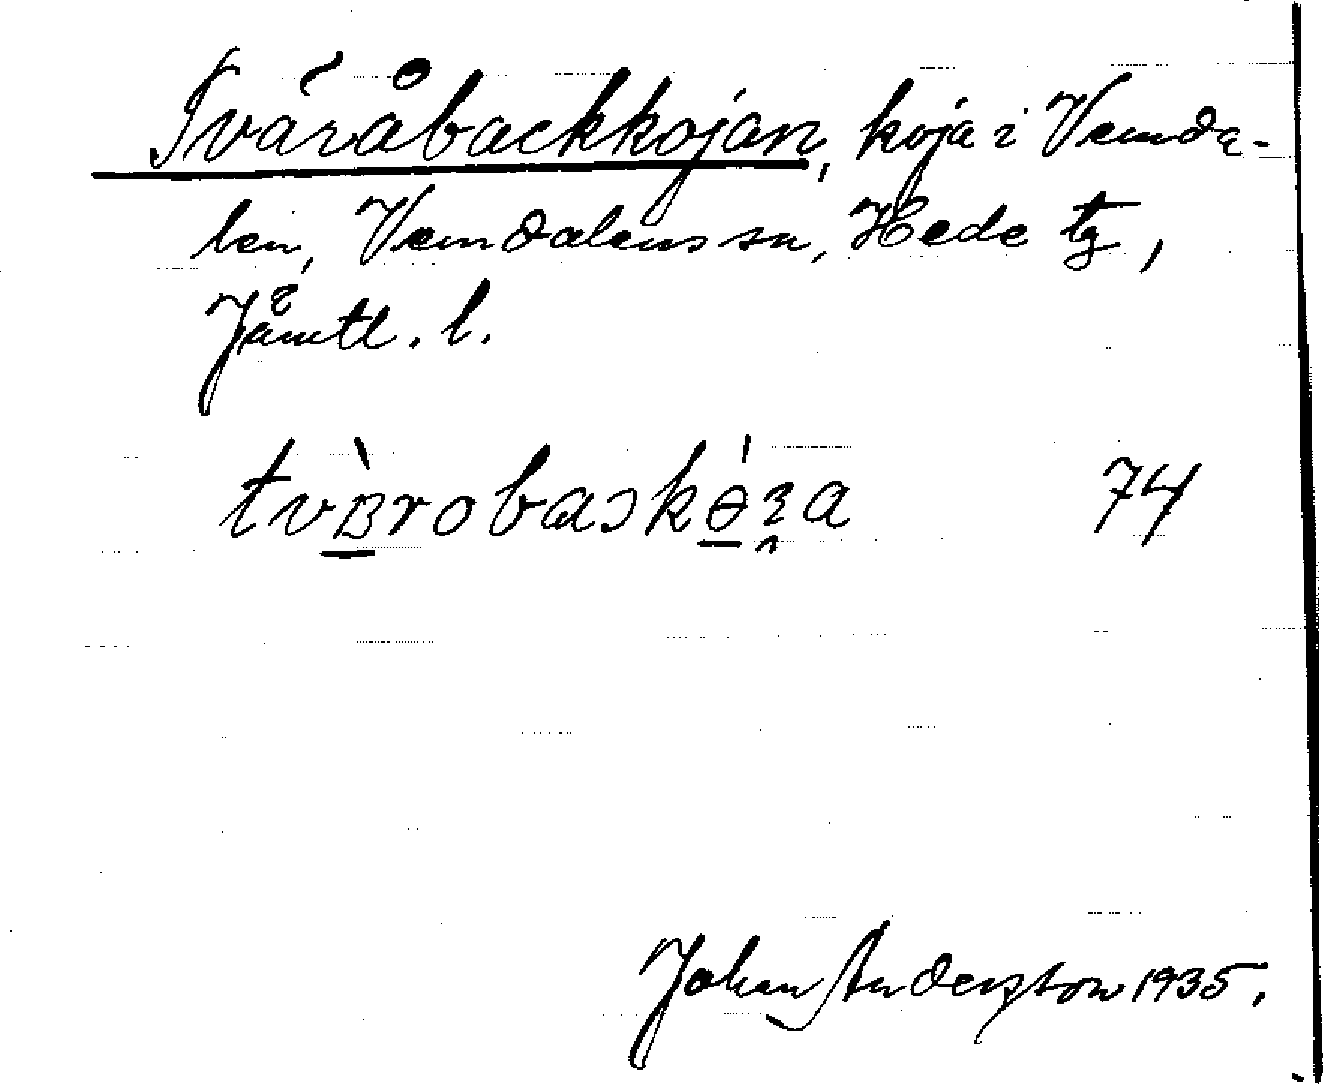 Tväråbackkojan, koja i Vemda-
len, Vemdalens sn, Hede tg,
Jämtl. l.
74
Johan Anderson 1935.